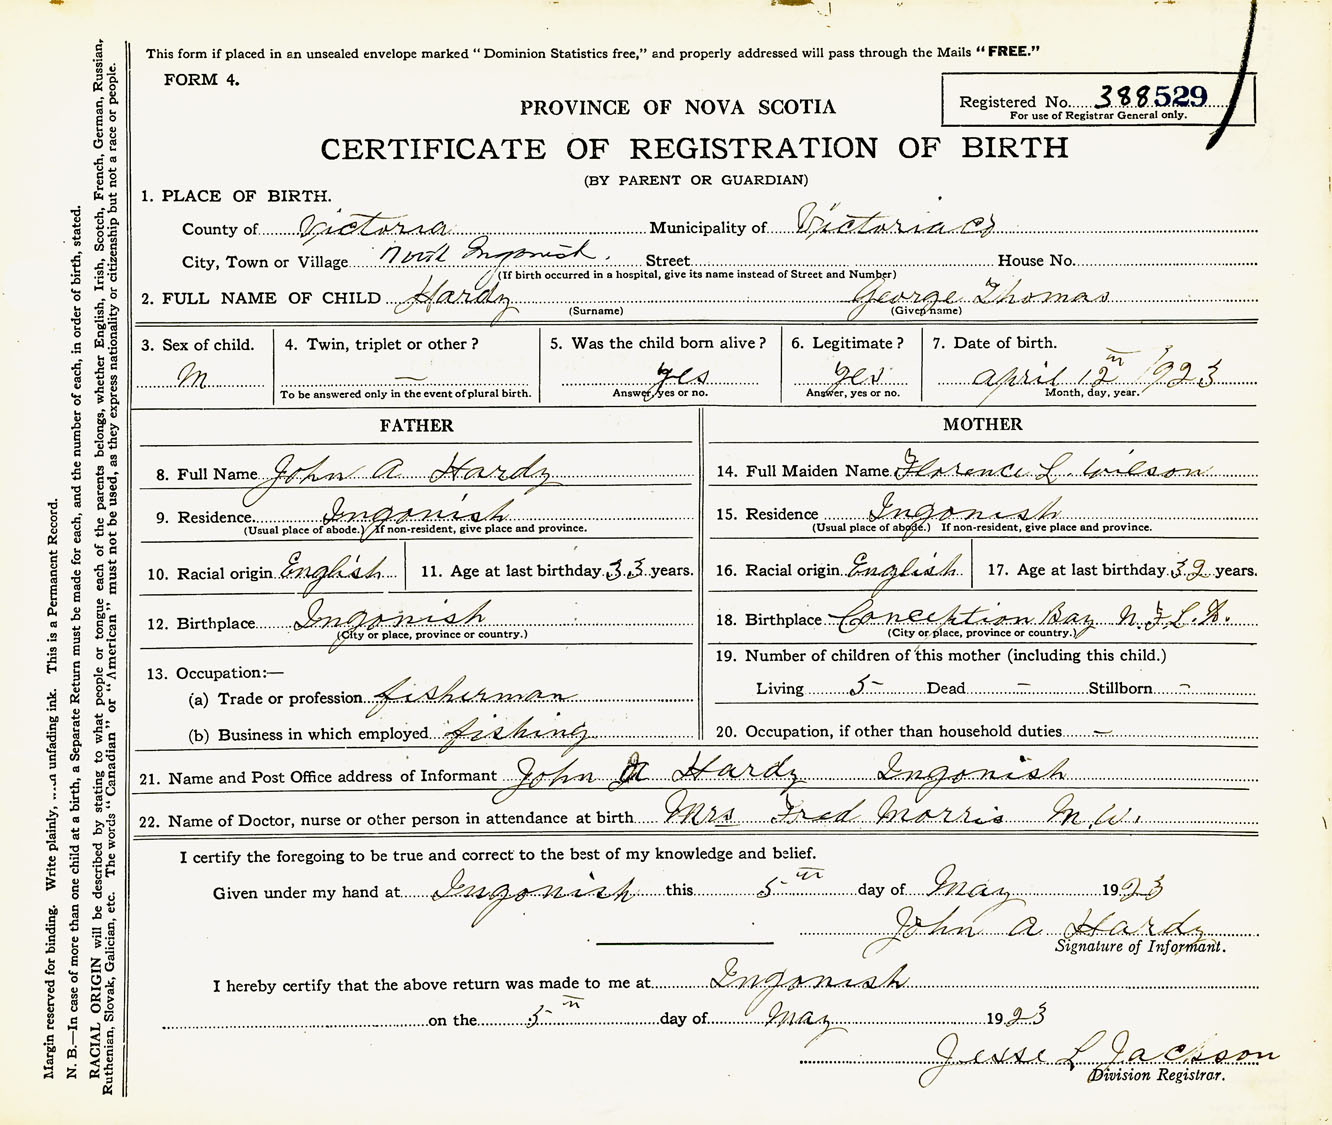 This form if placed in an unsealed envelope marked "Dominion Statistics free," and properly addressed will pass through the Mails "FREE."
FORM 4.
Registered No. 388529
For use of Registrar General only.
PROVINCE OF NOVA SCOTIA
CERTIFICATE OF REGISTRATION OF BIRTH
(BY PARENT OR GUARDIAN)
1. PLACE OF BIRTH.
County of Victoria Municipality of Victoria Co
City, Town or Village North Ingonish. Street House No.
(If birth occurred in a hospital, give its name instead of Street and Number)
2. FULL NAME OF CHILD Hardy George Thomas
(Surname) (Given name)
3. Sex of child. 4. Twin, triplet or other? 5. Was the child born alive? 6. Legitimate? 7. Date of birth.
M — yes yes april 12th 1923
To be answered only in the event of plural birth. Answer, yes or no. Answer, yes or no. Month, day, year.
FATHER MOTHER
8. Full Name John A Hardy 14. Full Maiden Name Florence L. Wilson
9. Residence Ingonish 15. Residence Ingonish
(Usual place of abode.) If non-resident, give place and province. (Usual place of abode.) If non-resident, give place and province.
10. Racial origin English 11. Age at last birthday 33 years. 16. Racial origin English 17. Age at last birthday 32 years.
12. Birthplace Ingonish 18. Birthplace Conception Bay N.F.L.D.
(City or place, province or country.) (City or place, province or country.)
19. Number of children of this mother (including this child.)
13. Occupation:—
Living 5 Dead — Stillborn —
(a) Trade or profession fisherman
(b) Business in which employed fishing 20. Occupation, if other than household duties —
21. Name and Post Office address of Informant John A Hardy Ingonish
22. Name of Doctor, nurse or other person in attendance at birth Mrs Fred Morris M.W.
I certify the foregoing to be true and correct to the best of my knowledge and belief.
Given under my hand at Ingonish this 5th day of May 1923
John A Hardy
Signature of Informant.
I hereby certify that the above return was made to me at Ingonish
on the 5th day of May 1923
Jesse L Jackson
Division Registrar.
Margin reserved for binding. Write plainly, unfading ink. This is a Permanent Record.
N. B.—In case of more than one child at a birth, a Separate Return must be made for each, and the number of each, in order of birth, stated.
RACIAL ORIGIN will be described by stating to what people or tongue each of the parents belongs, whether English, Irish, Scotch, French, German, Russian,
Ruthenian, Slovak, Galician, etc. The words "Canadian" or "American" must not be used, as they express nationality or citizenship but not a race or people.